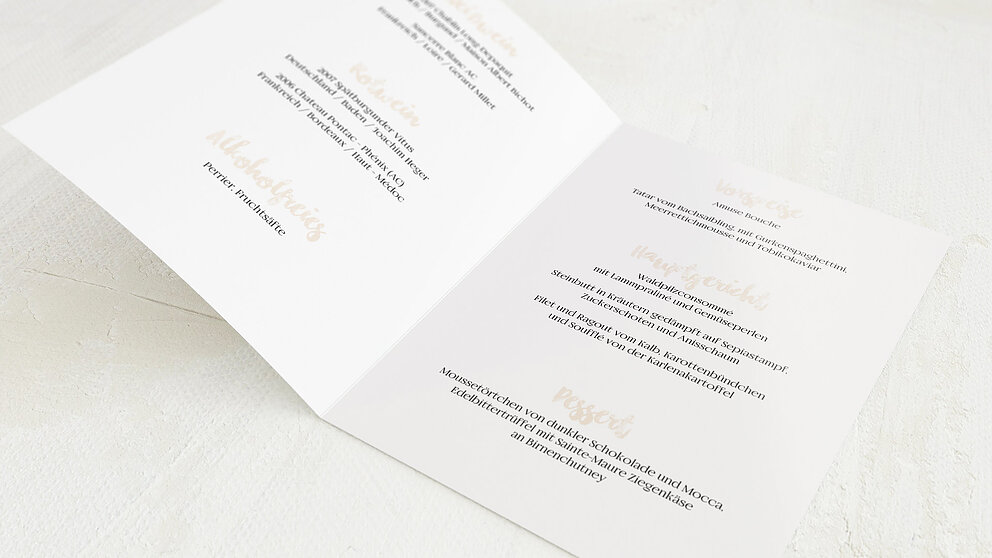 Chablis Long-Depaquit
Burgund / Maison Albert Bichot
Sancerre Blanc AC
Frankreich / Loire / Gerard Millet
Rotwein
2007 Spätburgunder Vitus
Deutschland / Baden / Joachim Heger
2006 Chateau Pontac - Phénix (AC)
Frankreich / Bordeaux / Haut - Médoc
Alkoholfreies
Perrier, Fruchtsäfte
Vorspeise
Amuse Bouche
Tatar vom Bachsaibling, mit Gurkenspaghettini,
Meerrettichmousse und Tobikokaviar
Hauptgericht
Waldpilzconsommé
mit Lammpraliné und Gemüseperlen
Steinbutt in Kräutern gedämpft auf Sepiastampf,
Zuckerschoten und Anisschaum
Filet und Ragout vom Kalb, Karottenbündchen
und Soufflé von der Karlenakartoffel
Dessert
Moussetörtchen von dunkler Schokolade und Mocca,
Edelbittertrüffel mit Sainte-Maure Ziegenkäse
an Birnenchutney